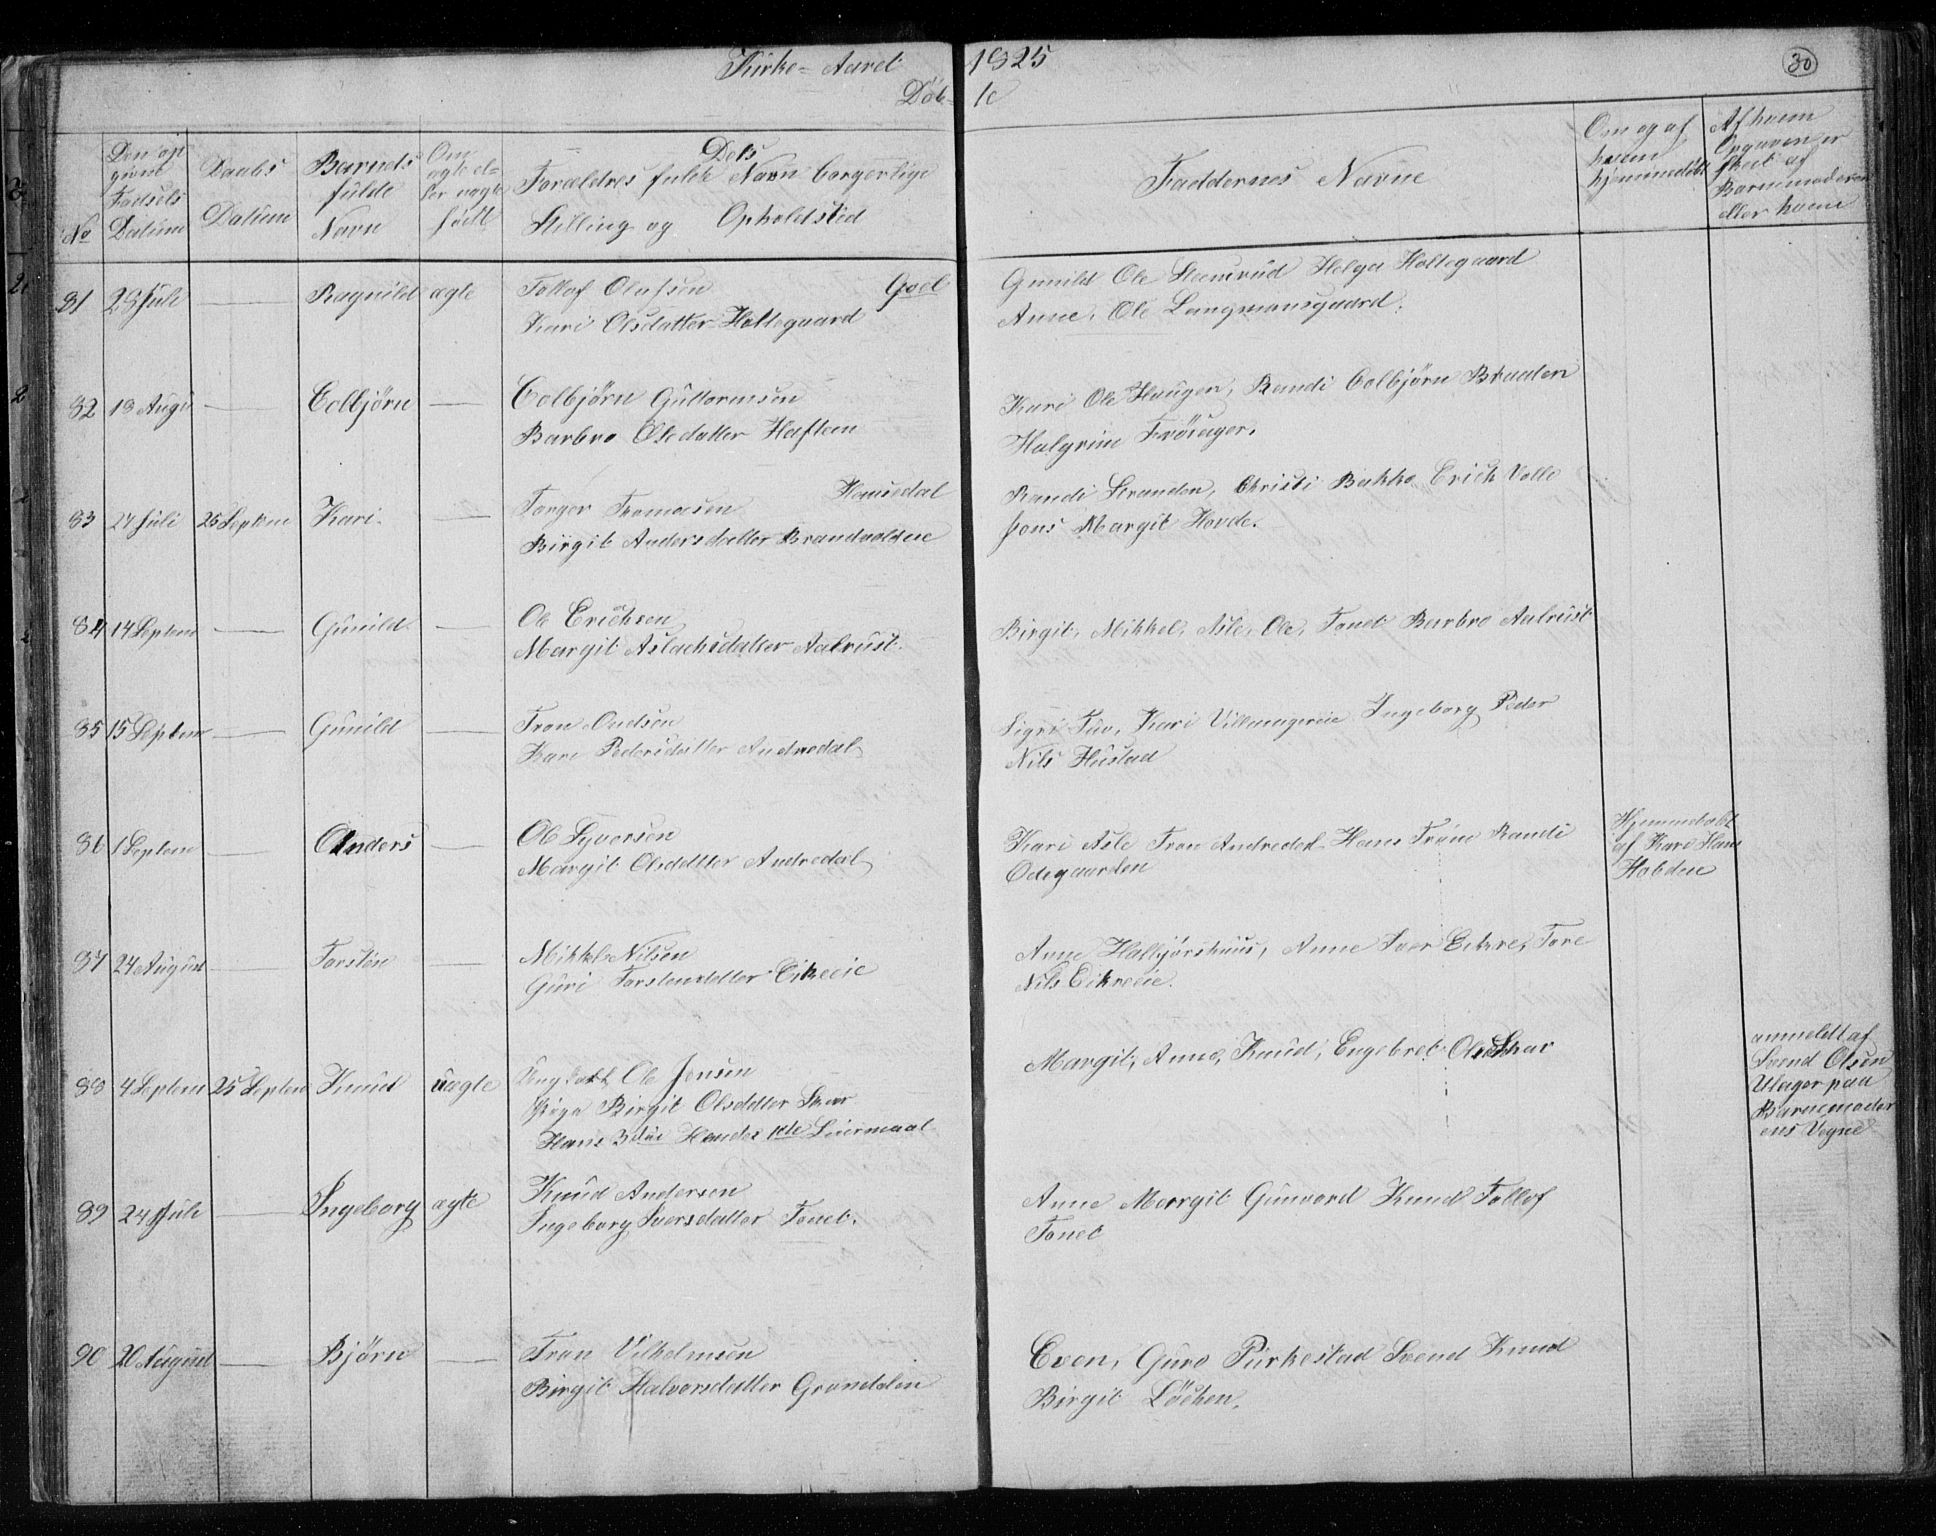 Kirke-Aaret 1825
30
Døb- te
No
Den op
givne
Fødsels
Datum
Daabs
Datum
Barnets
fulde
Navn
Om
ægte el-
ler uægte
født
Dets
Forældres fulde Navn borgerlige
Stilling og Opholdsted
Faddernes Navne
Om og af
hvem
hjemmedøbt
Af hvem
Opgaven er
skeet af
Barnemoderen
eller hvem
81 28 Juli Ragnild ægte Tollof Olafsen Goel
Kari Olsdatter Holtegaard
Gunild Ole Helga Holtegaard
Anne, Ole Langmansgaard.
82 13 Augu Colbjørn Colbjørn Guttormsen
Barbro Olsdatter Haftem
Kari Ole Haugen, Randi Colbjørn Braaten
Halgrim Frøsager.
83 27 Juli 25 Septem Kari Torger Tromesen Hemsedal
Birgit Andersdatter
Randi Stranden, Christi Bakke Erich Volle
Jons Margit Horde.
84 14 Septem Gunild Ole Erichsen
Margit Aslachsdatter Aalrust.
Birgit, Mikkel, Asle, Ole, Tonet Barbro Aalrust
85 15 Septem Gunild Tron Ondsen
Kari Pedersdatter Andredal
Sigri Tuv, Kari Ingeborg Peder
Nils Hustad
86 1 Septem Anders Ole Syversen
Margit Olsdatter Andredal
Kari Asle Tron Andredal Hans Trone Randi
Odegaarden
Hjemmedøbt
af Kari Hans
87 24 August Torsten Mikkel Nilsen
Guri Torstensdatter Eikreeie
Anne Anne Iver Eikre, Tore
Nils Eikreeie.
88 4 Septem 25 Septem Knud uægte Ungkarl Ole Jonsen
Pige Birgit Olsdatter Skar
Hans 3die Hendes 1ste Leiermaal
Margit, Anne, Knud, Engebret Ole Skar
anmeldt af
Svend Olsen
Ulager paa
Barnemoder
ens Vegne
89 24 Juli Ingeborg ægte Knud Andersen
Ingeborg Iversdatter Tonet.
Anne Margit Gunvord Knud Tollof
Tonet
90 20 August Bjørn Tron Vilhelmsen
Birgit Halvorsdatter Grøndalen
Even, Guro Purkestad Svend Knud
Birgit Løchen.